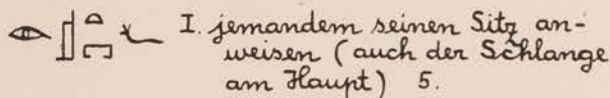 𓁹𓊨𓏏𓉐𓆑 I. jemandem seinen Sitz an-
weisen (auch der Schlange
am Haupt) 5.